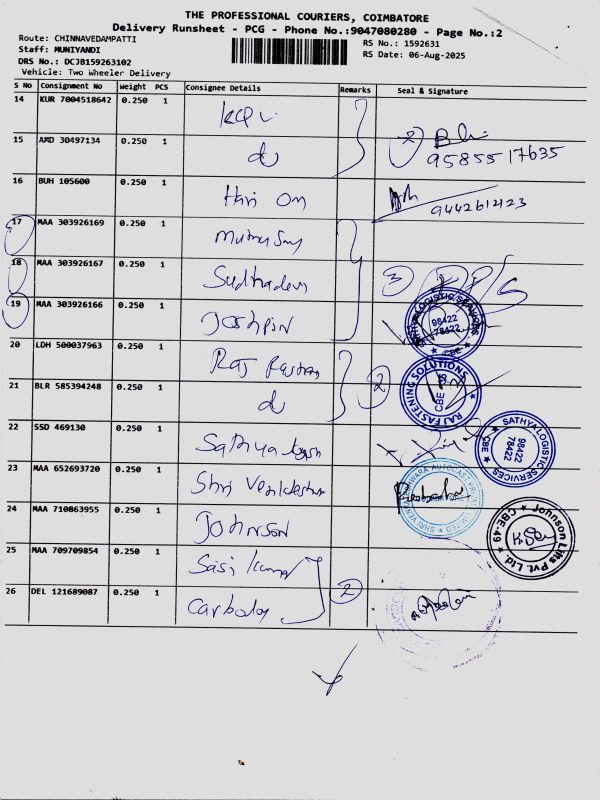 THE PROFESSIONAL COURIERS, COIMBATORE
Delivery Runsheet - PCG - Phone No.:9047080280 - Page No.:2
Route: CHINNAVEDAMPATTI
RS No.: 1592631
Staff: MUNIYANDI
RS Date: 06-Aug-2025
DRS No.: DCJB159263102
Vehicle: Two Wheeler Delivery
S No Consignment No Weight PCS Consignee Details Remarks Seal & Signature
14 KUR 7004518642 0.250 1
15 AMD 30497134 0.250 1 do 2
9585517635
16 BUH 105600 0.250 1 Hari Om
9442612123
17 MAA 303926169 0.250 1
18 MAA 303926167 0.250 1 Sudhadevi 3
19 MAA 303926166 0.250 1 Joshpin
LOGISTIC SERVICES 98422 78622 CBE
20 LDH 500037963 0.250 1 Raj
21 BLR 585394248 0.250 1 do 2
RAJ FASTENING SOLUTIONS CBE
22 SSD 469130 0.250 1 Sathya
SATHYA LOGISTIC SERVICES 98422 78422 CBE
23 MAA 652693720 0.250 1 Shri Venkateshwara
SHRI VENKATESHWARA AUTOCAST PRIVATE LIMITED
24 MAA 710863955 0.250 1 Johnson
Johnson Lifts Pvt. Ltd. CBE-49
25 MAA 709709854 0.250 1 Sasi Kumar
26 DEL 121689087 0.250 1 2